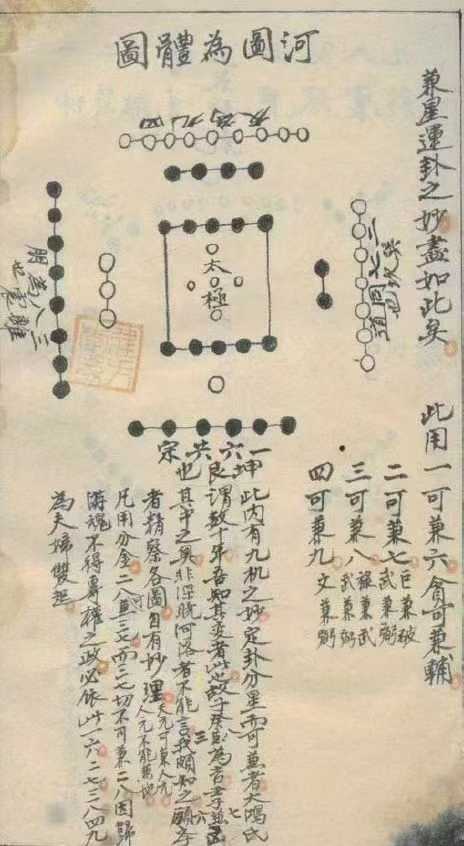 河圖為體圖
兼星運卦之妙盡如此矣
此用一可兼六貪可兼輔
二可兼七巨兼破 武兼弼
三可兼八祿兼武 武兼弼
四可兼九文兼弼
友為九四
二七同道
朋為八三
也震離
太極
一六共宗
坤艮也 此內有九机之妙定卦分星而可並者大鴻氏
謂数十年吾知其交者此也故子癸
其中之奥非深晓河洛者不能言我頗知之願孝
者精察各圖自有妙理天元可兼人元 人元不能兼地
凡用分金二八並三七而三七切不可兼二八因歸
游魂不得專權之政必依此一六二七三八四九
為夫婦雙起